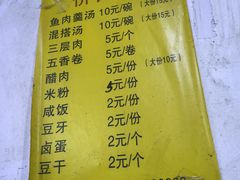 鱼肉羹汤 10元/碗 (大份15元)
混搭汤 10元/碗 (大份15元)
三层肉 5元/个
五香卷 5元/卷
醋肉 5元/份 (大份10元)
米粉 5元/份
咸饭 2元/份
豆牙 2元/份
卤蛋 2元/个
豆干 2元/个